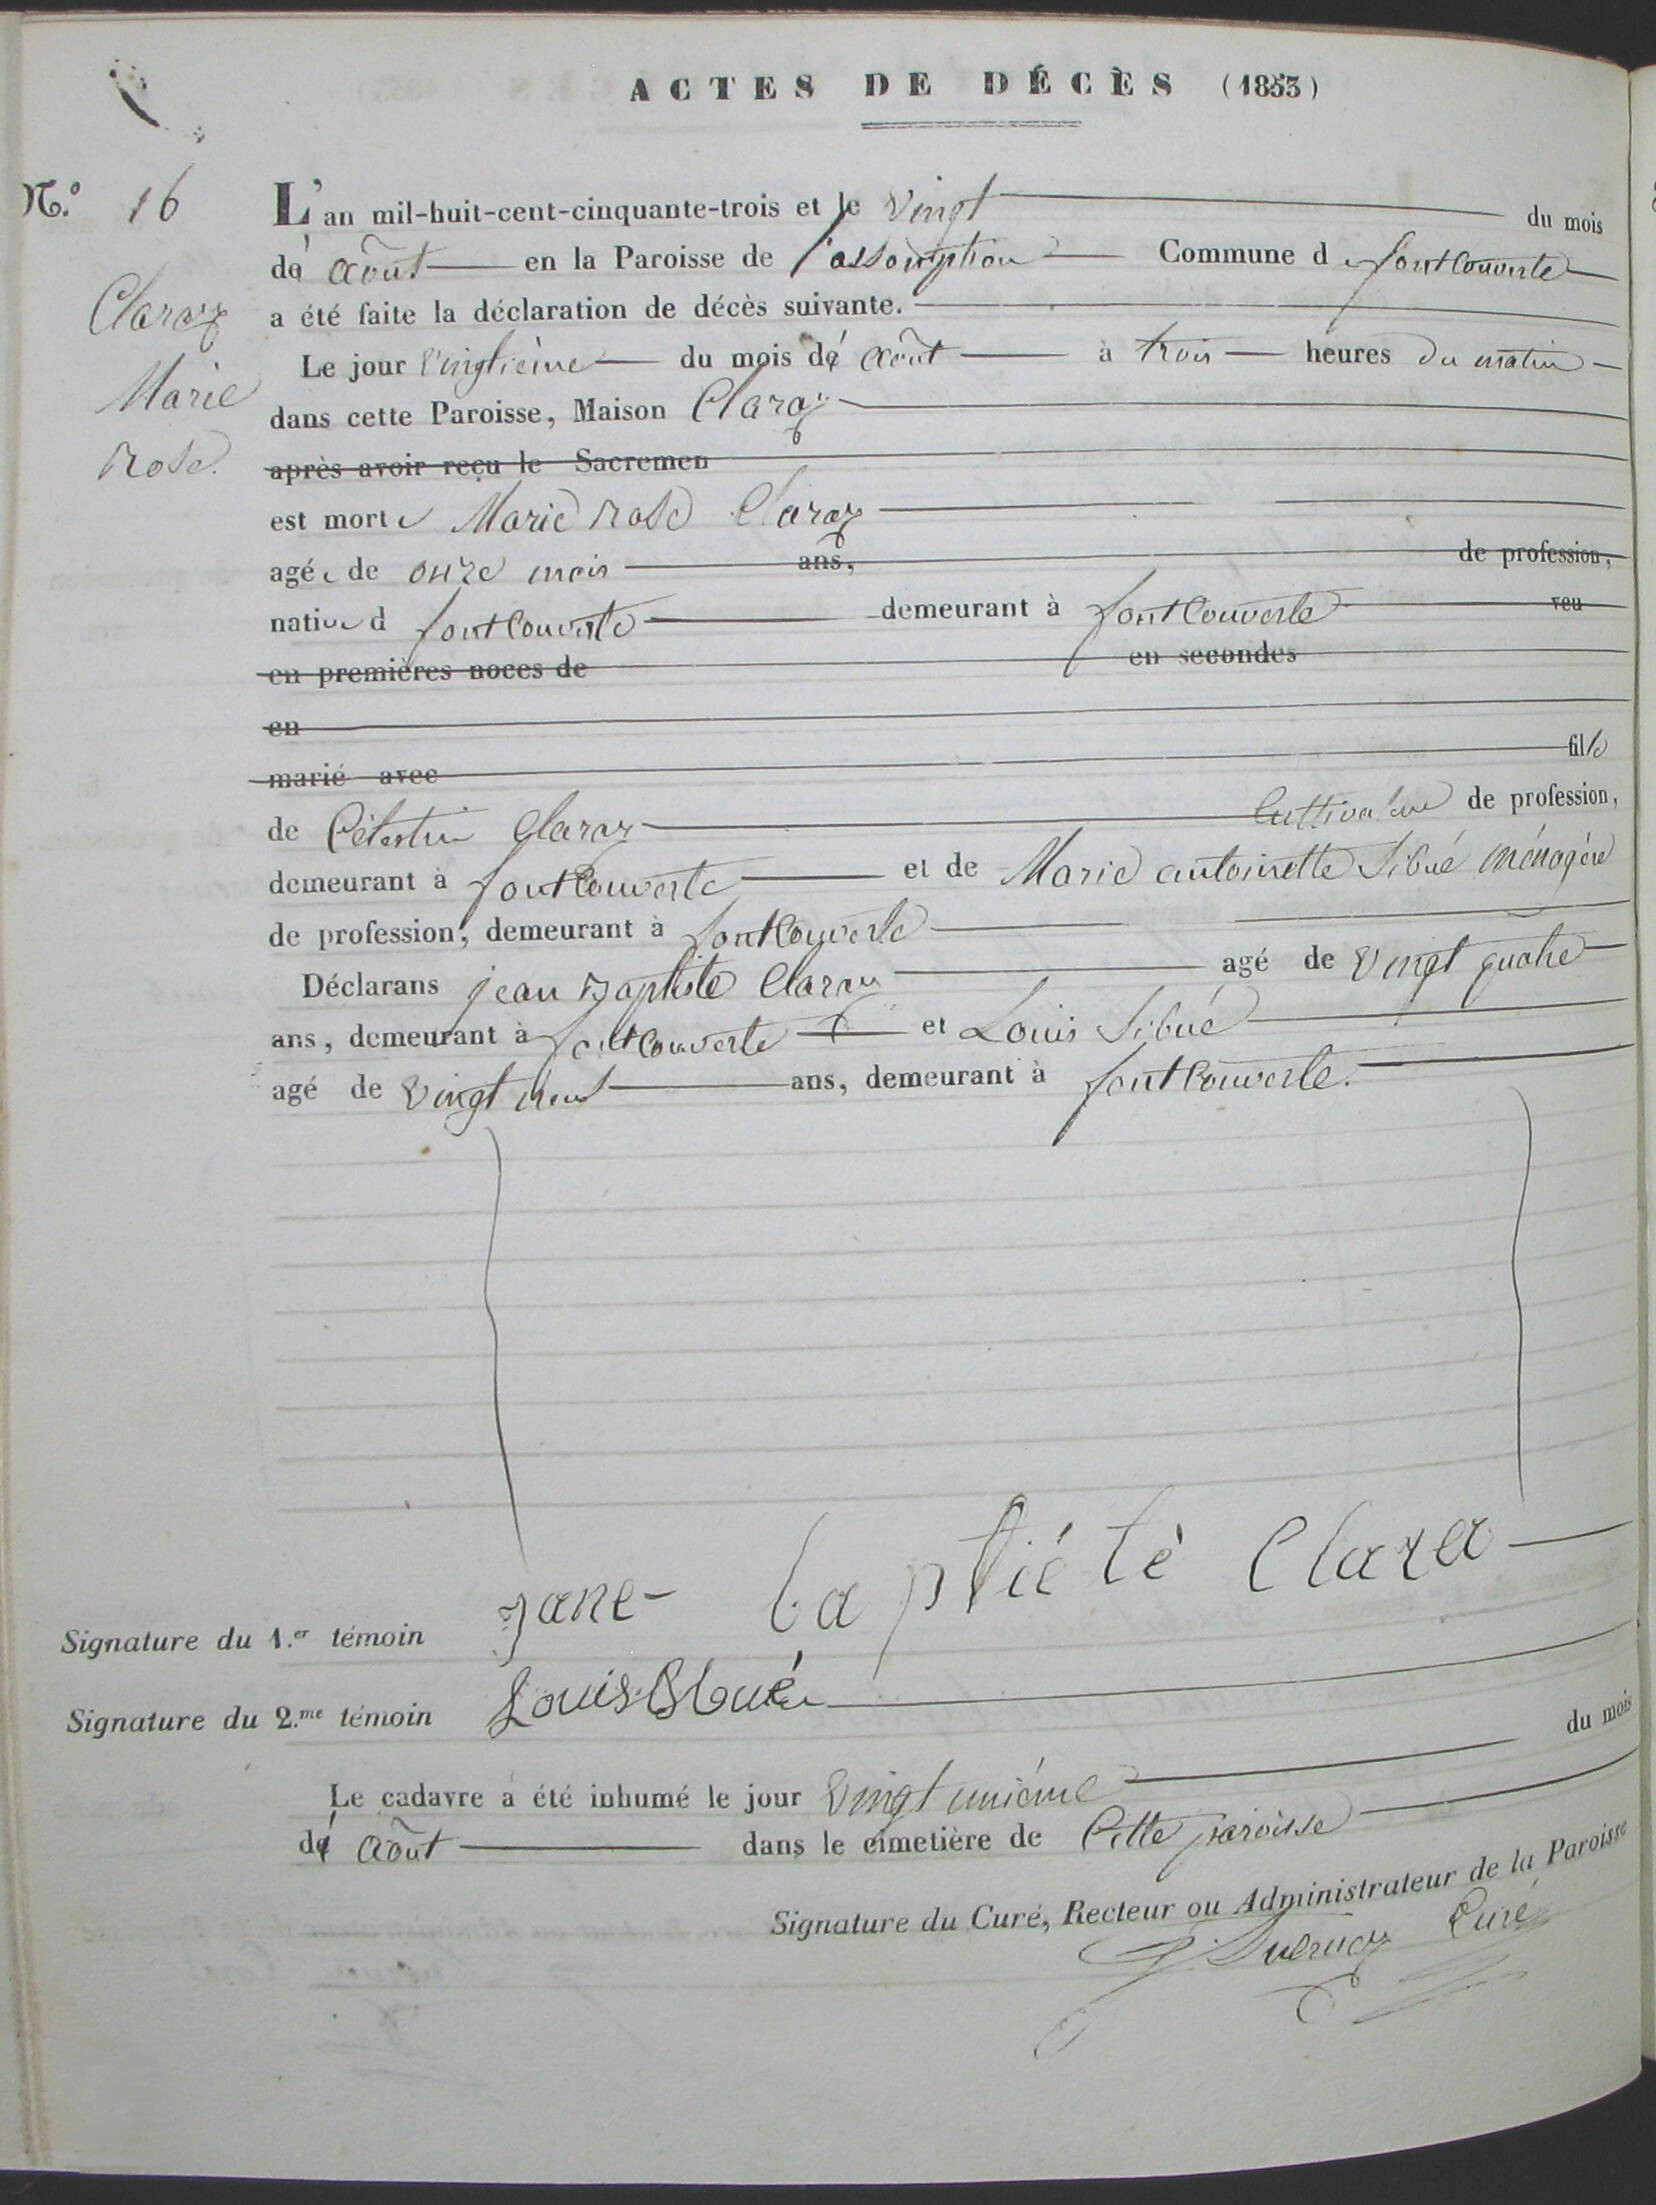 ACTES DE DÉCÈS (1853)
N.º 16
Claraz
Marie
rose.
L'an mil-huit-cent-cinquante-trois et le vingt du mois
dé août en la Paroisse de l'assomption Commune de fontcouverte
a été faite la déclaration de décès suivante.
Le jour vingtième du mois dé août à trois heures du matin
dans cette Paroisse, Maison Claraz
après avoir reçu le Sacremen
est morte Marie rose Claraz
agée de onze mois ans, de profession,
native d fontcouverte demeurant à fontcouverte veu
en premières noces de en secondes
en
marié avec fille
de Célestin Claraz Cultivateur de profession,
demeurant à fontcouverte et de Marie antoinette Sibué ménagère
de profession, demeurant à fontcouverte
Déclarans jean Baptiste Claraz agé de vingt quatre
ans, demeurant à fontcouverte et Louis Sibué
agé de vingt ans, demeurant à fontcouverte.
Signature du 1.er témoin jane baptiété Clara
Signature du 2.me témoin Louis Sibué
Le cadavre a été inhumé le jour vingt unième du mois
dé août dans le cimetière de Cette paroisse
Signature du Curé, Recteur ou Administrateur de la Paroisse
Curé